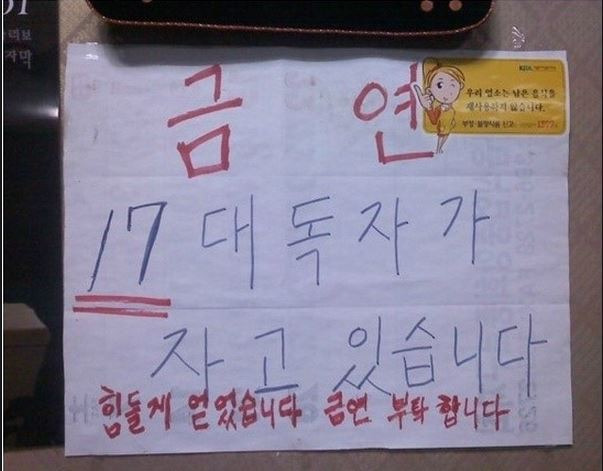 금 연
우리 업소는 남은 음식을
재사용하지 않습니다.
부정·불량식품 신고
1399
17 대 독 자 가
자 고 있습니다
힘들게 얻었습니다 금연 부탁 합니다